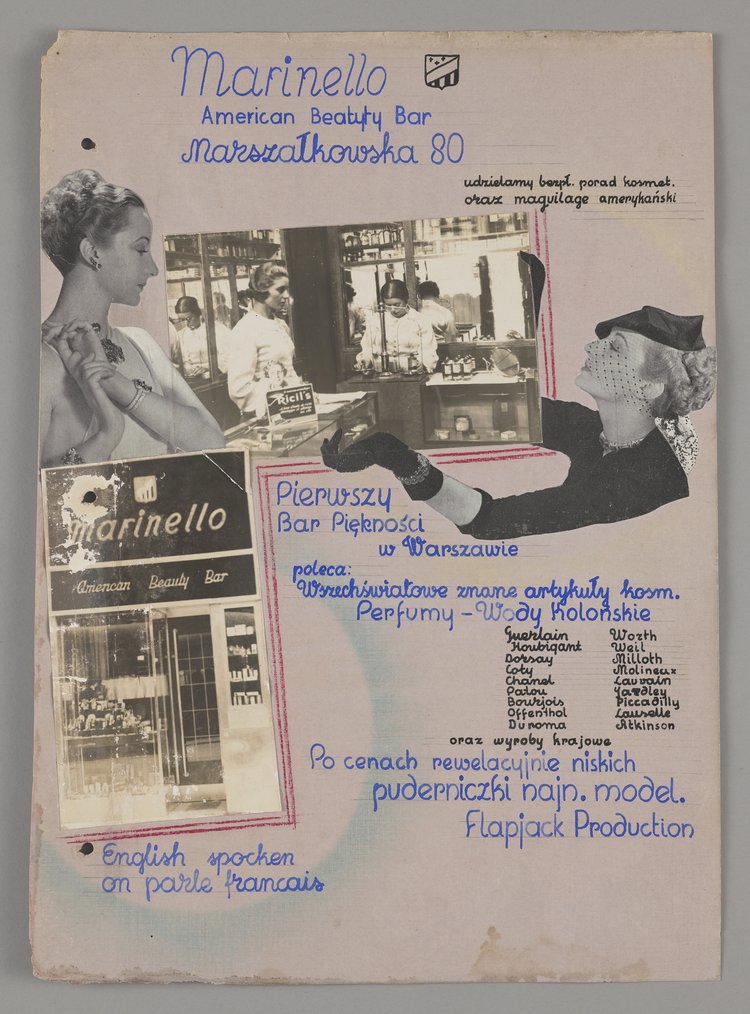 Marinello
American Beatyty Bar
Marszałkowska 80
udzielamy bezpł. porad kosmet.
oraz maquilage amerykański
Ricil's
marinello
American Beauty Bar
Pierwszy
Bar Piękności
w Warszawie
poleca:
Wszechświatowe znane artykuły kosm.
Perfumy - Wody Kolońskie
Guerlain Worth
Houbigant Weil
Dorsay Milloth
Coty Molineux
Chanel Lauvain
Patou Yardley
Bourjois Piccadilly
Offenthol Lauselle
Duroma Atkinson
oraz wyroby krajowe
Po cenach rewelacyjnie niskich
puderniczki najn. model.
Flapjack Production
English spocken
on parle francais